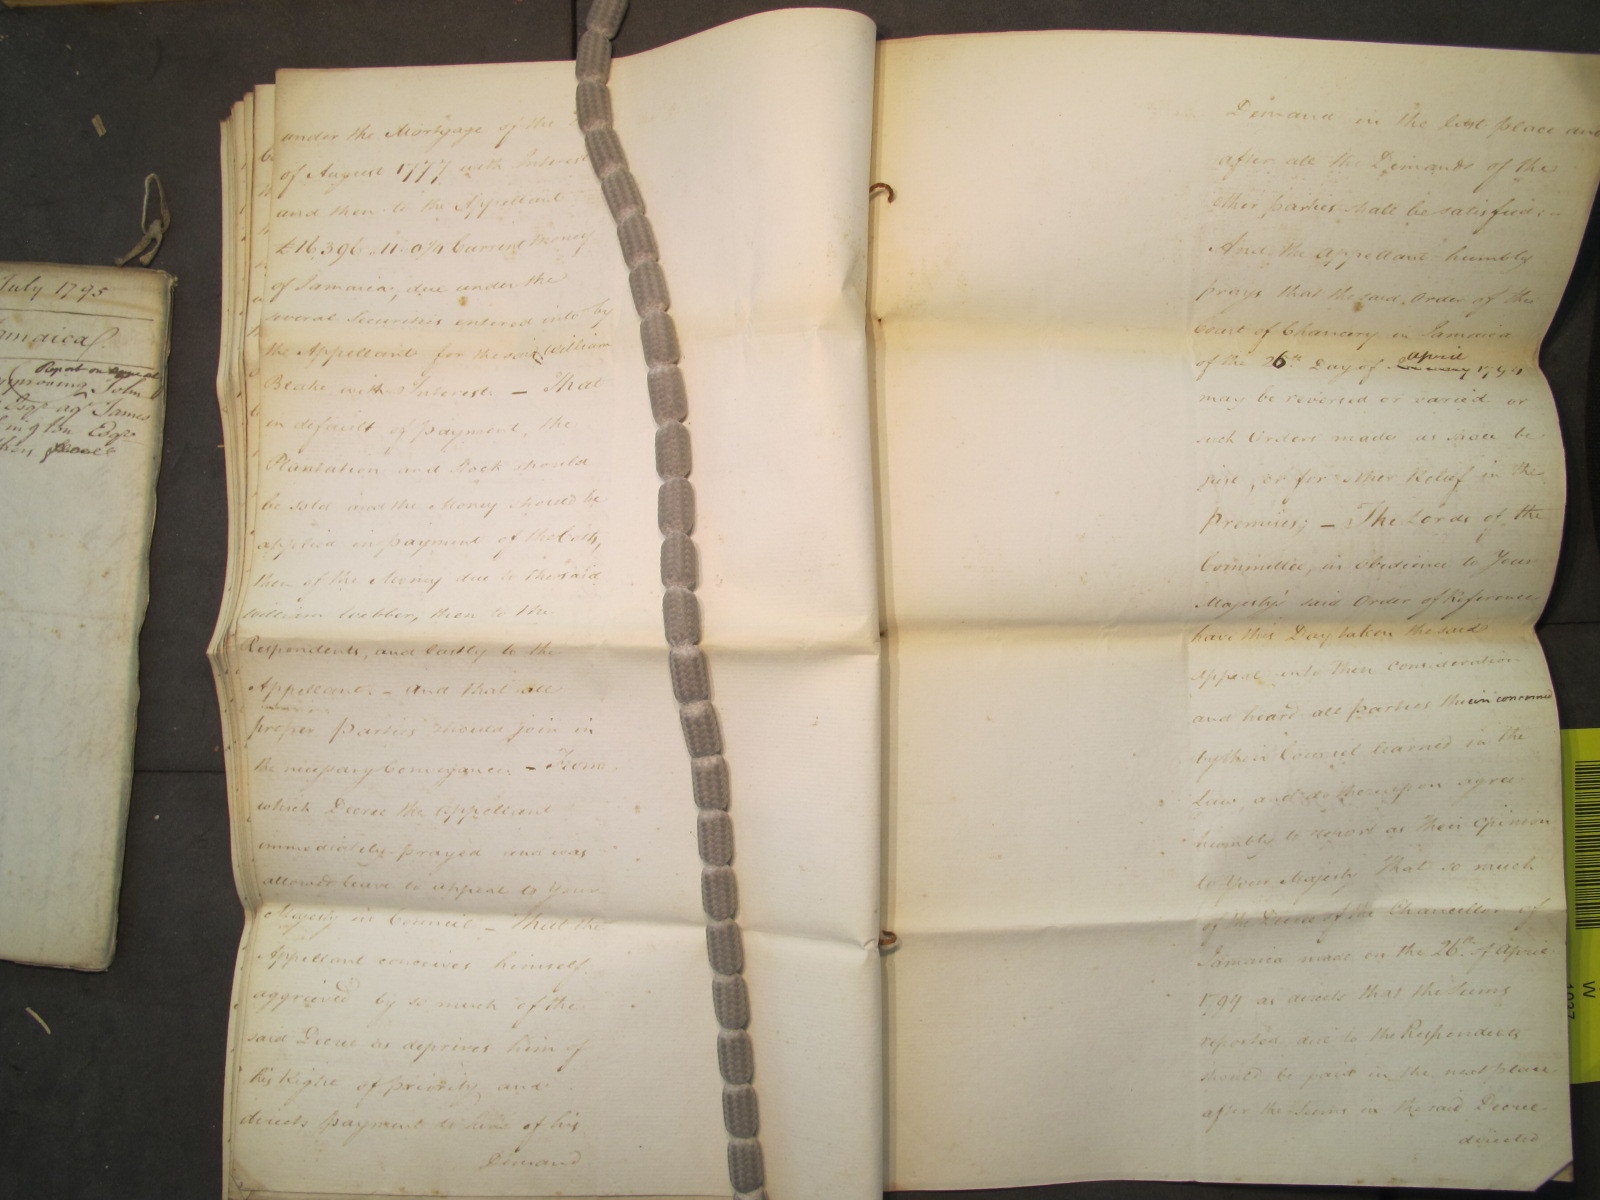 July 1795
Jamaica
Report on appeal
approving John
Esqr agt James
Esqr
under the Mortgage of the
of August 1777 with Interest
and then to the Appellant
£16396 11 0¼ Current Money
of Jamaica, due under the
several Securities entered into by
the Appellant for the said William
Beake with Interest. – That
in default of payment, the
Plantation and Stock should
be sold and the Money should be
applied in payment of the Costs,
then of the Money due to the said
William Webber, then to the
Respondents, and lastly to the
Appellant. – and that all
proper parties should join in
the necessary Conveyance. – From
which Decree the appellant
immediately prayed and was
allowed leave to appeal to Your
Majesty in Council – That the
Appellant conceives himself
aggrieved by so much of the
said Decree as deprives him of
his Right of priority and
directs payment to him of his
Demand
Demand in the last place and
after all the Demands of the
other parties shall be satisfied:–
And the appellant humbly
prays that the said Order of the
Court of Chancery in Jamaica
of the 26th Day of April 1794
may be reversed or varied or
such Orders made as shall be
just, or for other Relief in the
Premises; – The Lords of the
Committee, in obedience to Your
Majesty's said Order of Reference
have this Day taken the said
Appeal into their Consideration
and heard all parties therein concerned
by their Counsel learned in the
Law, and do thereupon agree
humbly to report as their Opinion
to Your Majesty That so much
of the Decree of the Chancellor of
Jamaica made on the 26th of April
1794 as directs that the Sums
reported due to the Respondents
should be paid in the next place
after the Sums in the said Decree
directed
W
1037